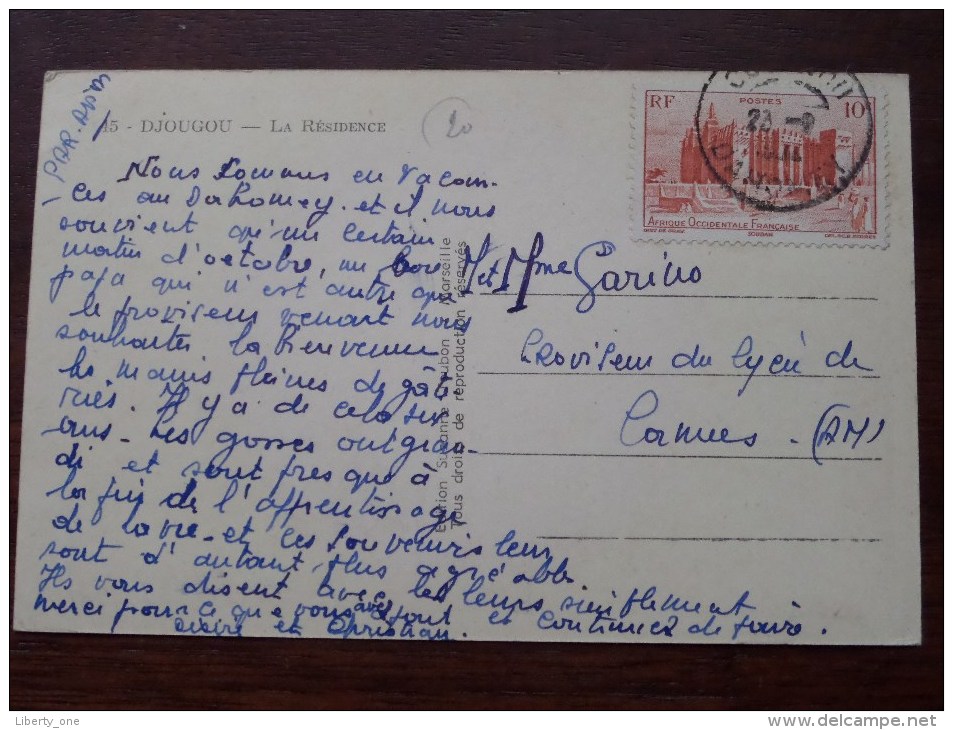 PAR. AVION
15 - DJOUGOU — LA RÉSIDENCE
20
Nous sommes en vacan-
ces au Dahomey. et il nous
souvient qu'un certain
matin d'octobre, un bon
papa qui n'est autre que
le proviseur venait nous
souhaiter la bienvenue
les mains pleines de gâte
ries. Il y a de cela six
ans. Les gosses ont gran-
di et sont presque à
la fin de l'apprentissage
de la vie. et les souvenirs leur
sont d'autant plus agréables
Ils vous disent avec
simplement
merci pour ce que vous avez fait et continuez de faire.
et Christian.
Edition Suzanne Marseille
Tous droits de reproduction réservés
RF
POSTES
10F
AFRIQUE OCCIDENTALE FRANÇAISE
M et Mme Garino
Proviseur du Lycée de
Cannes - (AM)
Liberty_one